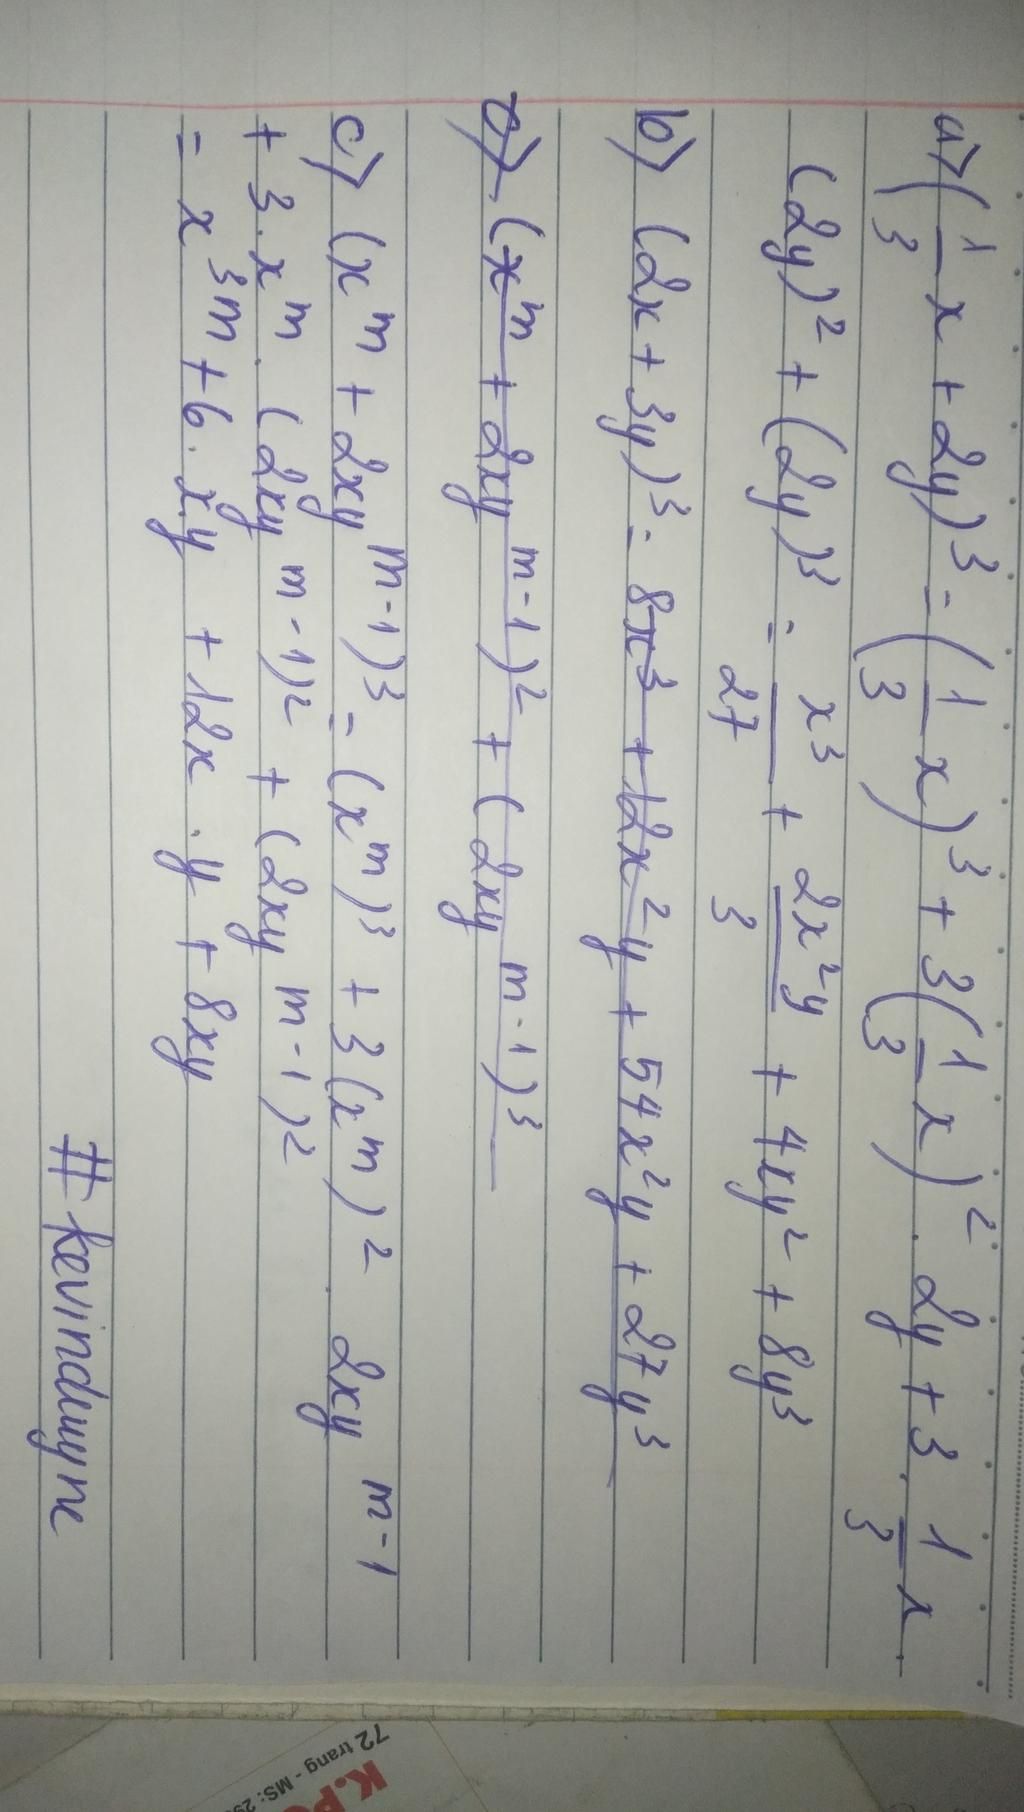 a) (1/3 x + 2y)³ = (1/3 x)³ + 3(1/3 x)² . 2y + 3 . 1/3 x .
(2y)² + (2y)³ = x³/27 + 2x²y/3 + 4xy² + 8y³
b) (2x + 3y)³ = 8x³ + 12x²y + 54x²y + 27y³
c) (x^m + 2xy^m-1)² + (2xy^m-1)³
c) (x^m + 2xy^m-1)³ = (x^m)³ + 3(x^m)² . 2xy^m-1
+ 3 . x^m . (2xy^m-1)² + (2xy^m-1)²
= x^3m + 6 . x.y + 12x . y + 8xy
#kevinduyne
72 trang - MS: 2
K.P